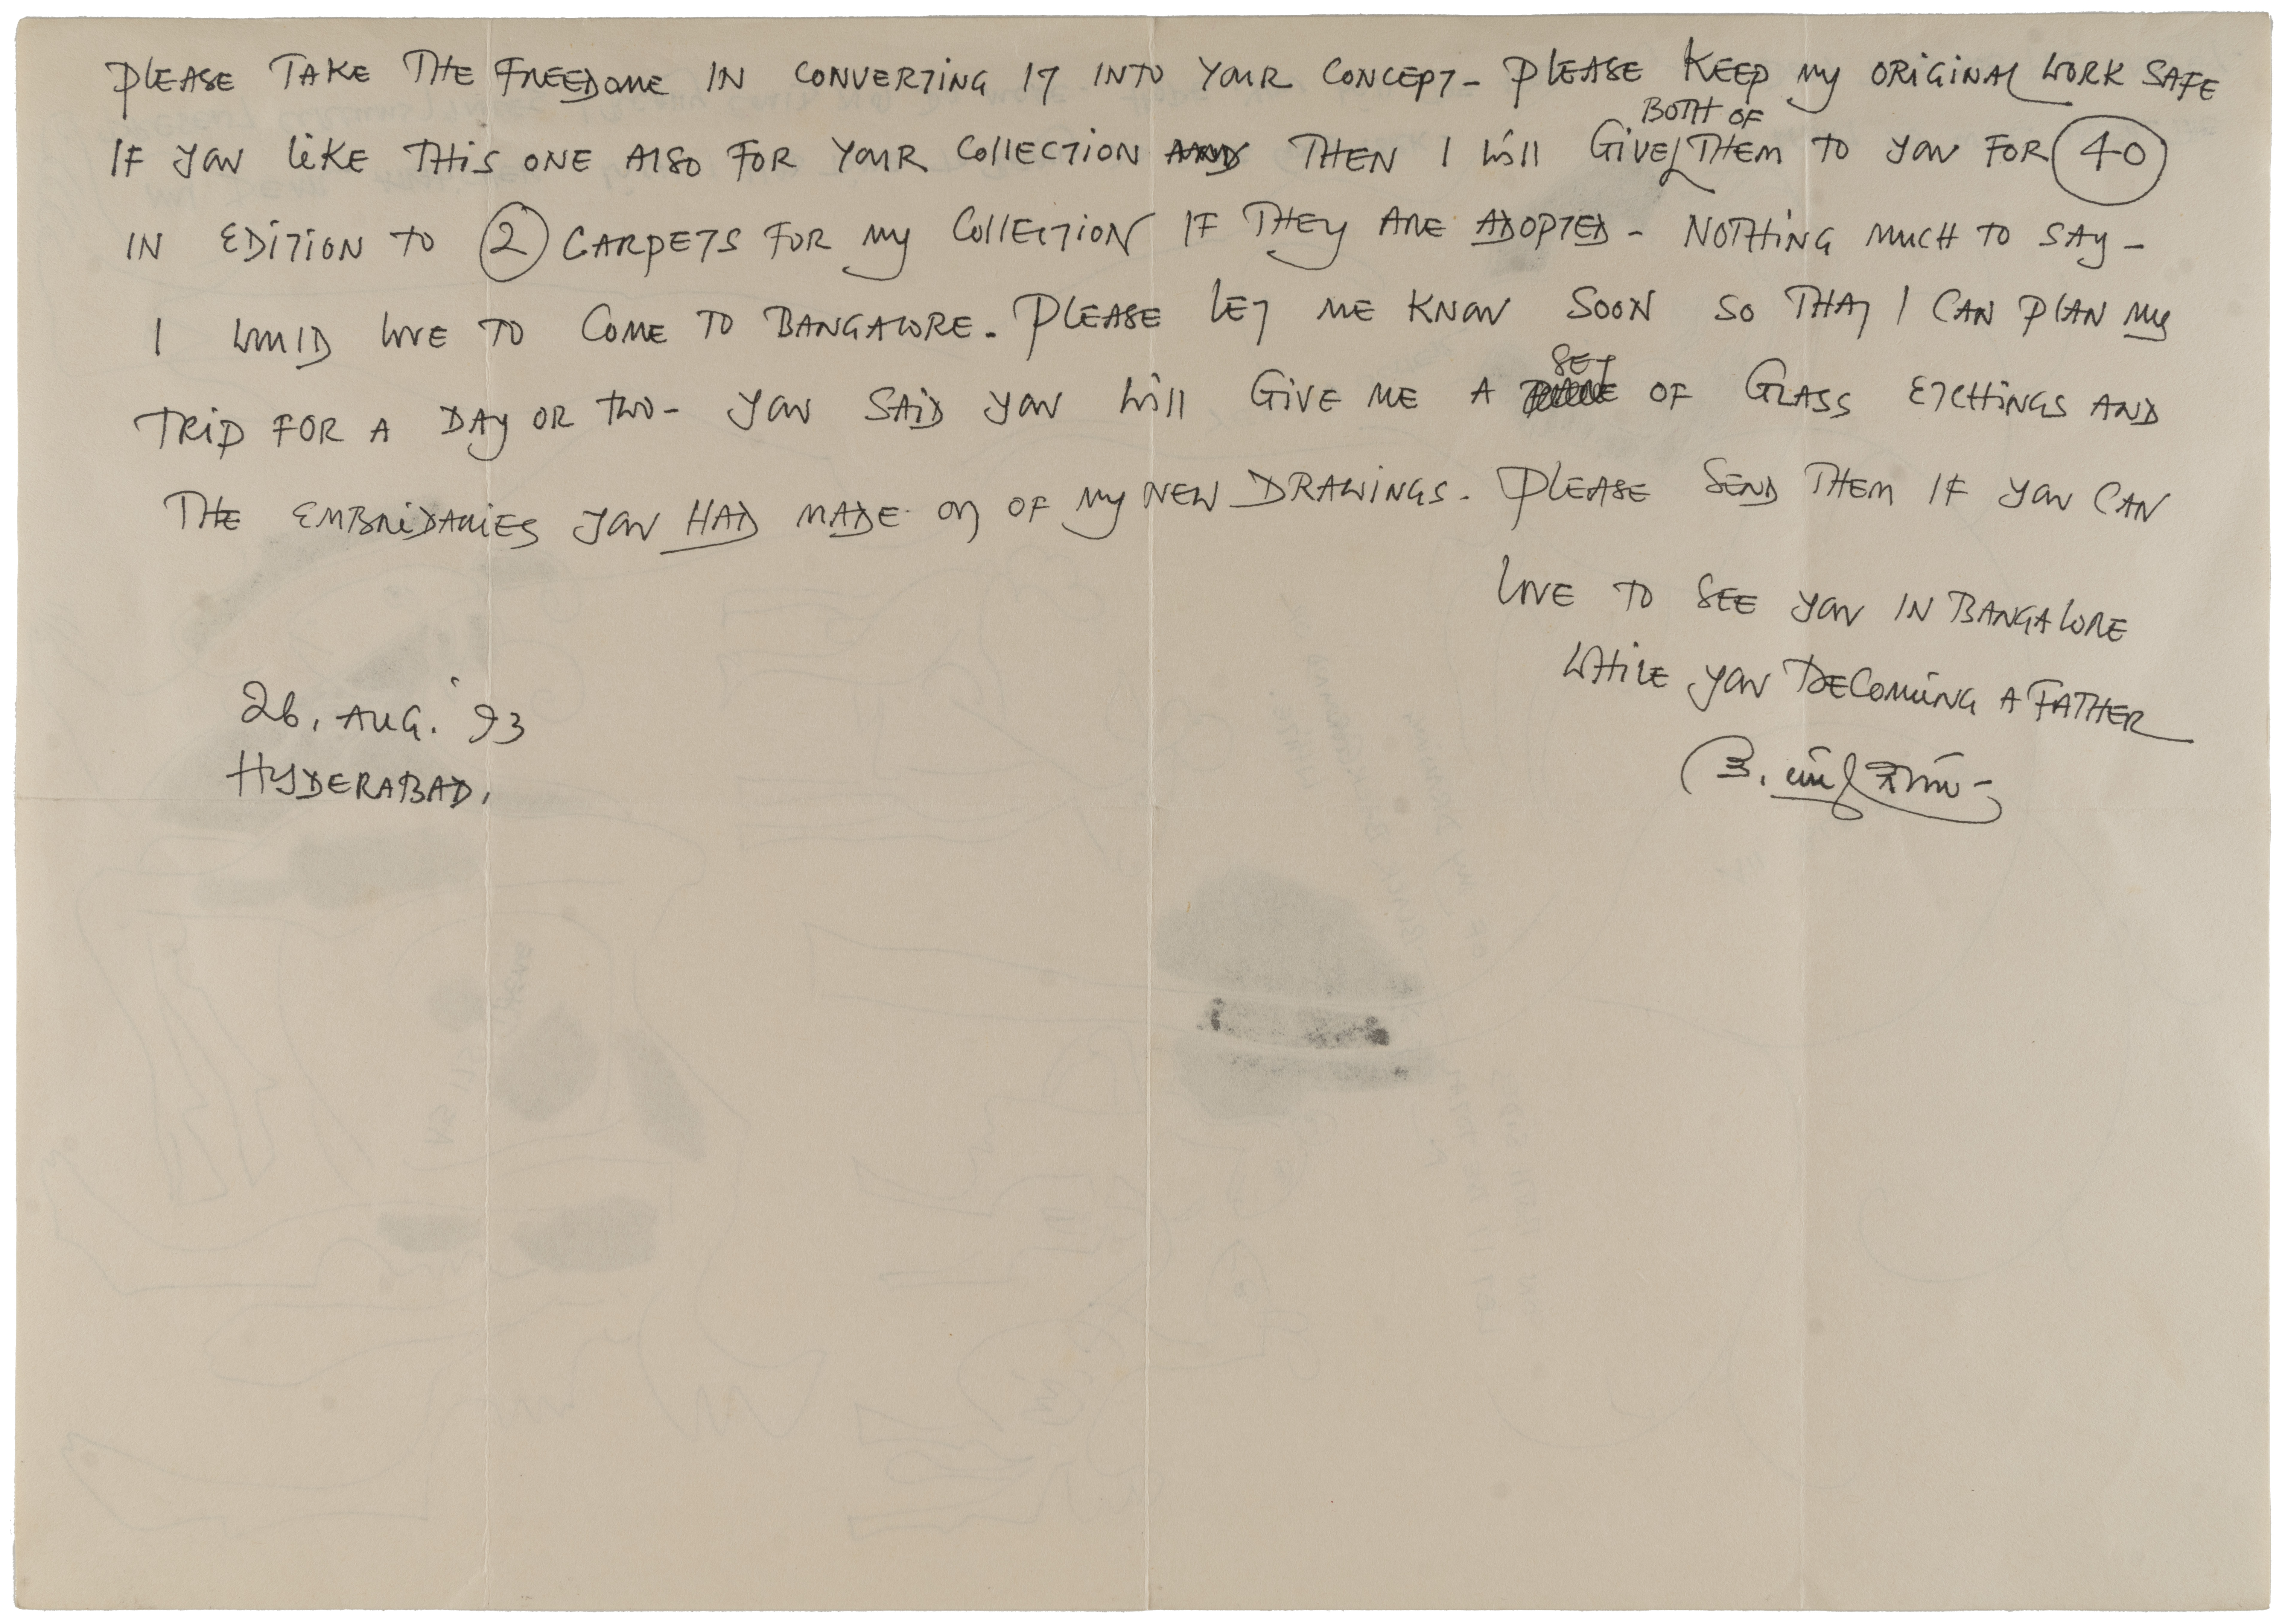 PLEASE TAKE THE FREEDOME IN CONVERTING IT INTO YOUR CONCEPT - PLEASE KEEP MY ORIGINAL WORK SAFE
IF YOU LIKE THIS ONE ALSO FOR YOUR COLLECTION THEN I WILL GIVE BOTH OF THEM TO YOU FOR 40
IN EDITION TO 2 CARPETS FOR MY COLLECTION IF THEY ARE ADOPTED - NOTHING MUCH TO SAY -
I WOULD LOVE TO COME TO BANGALORE. PLEASE LET ME KNOW SOON SO THAT I CAN PLAN MY
TRIP FOR A DAY OR TWO - YOU SAID YOU WILL GIVE ME A SET OF GLASS ETCHINGS AND
THE EMBRIDARIES YOU HAD MADE OF MY NEW DRAWINGS. PLEASE SEND THEM IF YOU CAN
LOVE TO SEE YOU IN BANGALORE
WHILE YOU BECOMING A FATHER
26. AUG. '93
HYDERABAD.